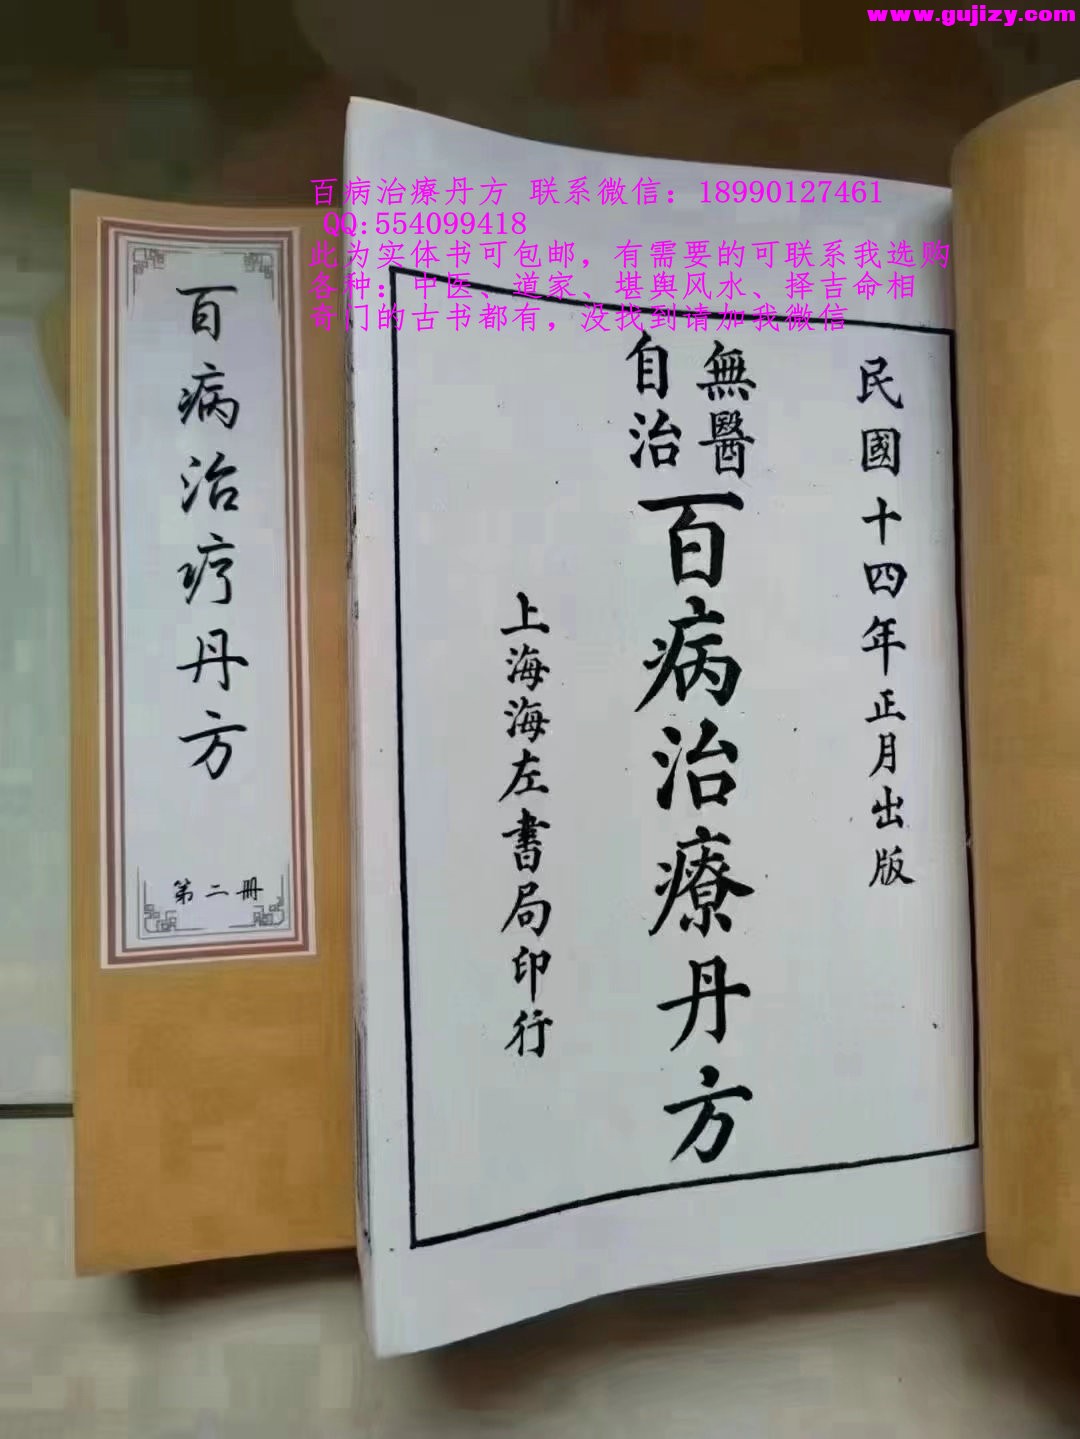 www.gujizy.com
百病治療丹方 联系微信：18990127461
QQ:554099418
此为实体书可包邮，有需要的可联系我选购
各种：中医、道家、堪舆风水、择吉命相
奇门的古书都有，没找到请加我微信
民國十四年正月出版
無醫
自治
百病治療丹方
上海海左書局印行
百病治疗丹方
第二册